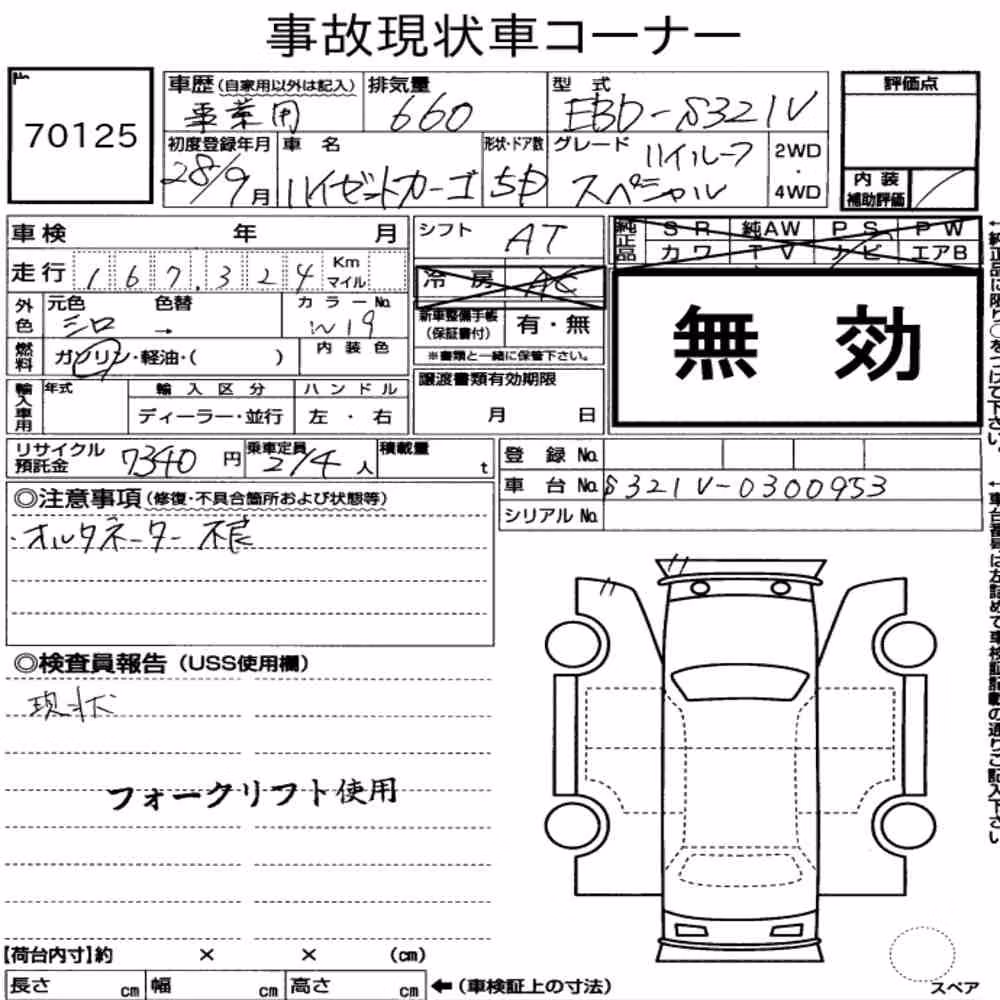 事故現状車コーナー
70125
車歴(自家用以外は記入) 排気量 型式 評価点
事業用 660 EBD-S321V
初度登録年月 車名 形状・ドア数 グレード ハイルーフ 2WD・4WD
28/9月 ハイゼットカーゴ 5D スペシャル
内装補助評価
車検 年 月 シフト AT 純正品 SR 純AW PS PW
カワ TV ナビ エアB
走行 167,324 Km マイル 冷房 AC
外色 元色 色替 カラーNo. 新車整備手帳(保証書付) 有・無
シロ → W19
※書類と一緒に保管下さい。
無効
燃料 ガソリン・軽油・( ) 内装色
譲渡書類有効期限
輸入車用 年式 輸入区分 ハンドル
ディーラー・並行 左・右 月 日
リサイクル預託金 7340円 乗車定員 2/4人 積載量 t
登録No.
車台No. S321V-0300953
シリアルNo.
◎注意事項(修復・不具合箇所および状態等)
オルタネーター不良
◎検査員報告(USS使用欄)
現状
フォークリフト使用
【荷台内寸】約 × × (cm)
長さ cm 幅 cm 高さ cm ←(車検証上の寸法)
スペア
←純正品に限り○をつけて下さい。
←車台番号は左詰めで車検証記載の通りご記入下さい